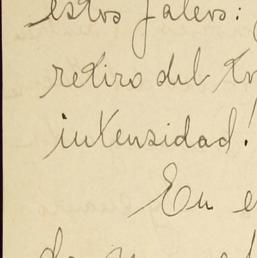 estos jaleos:
retiro del tr
intensidad!
En e